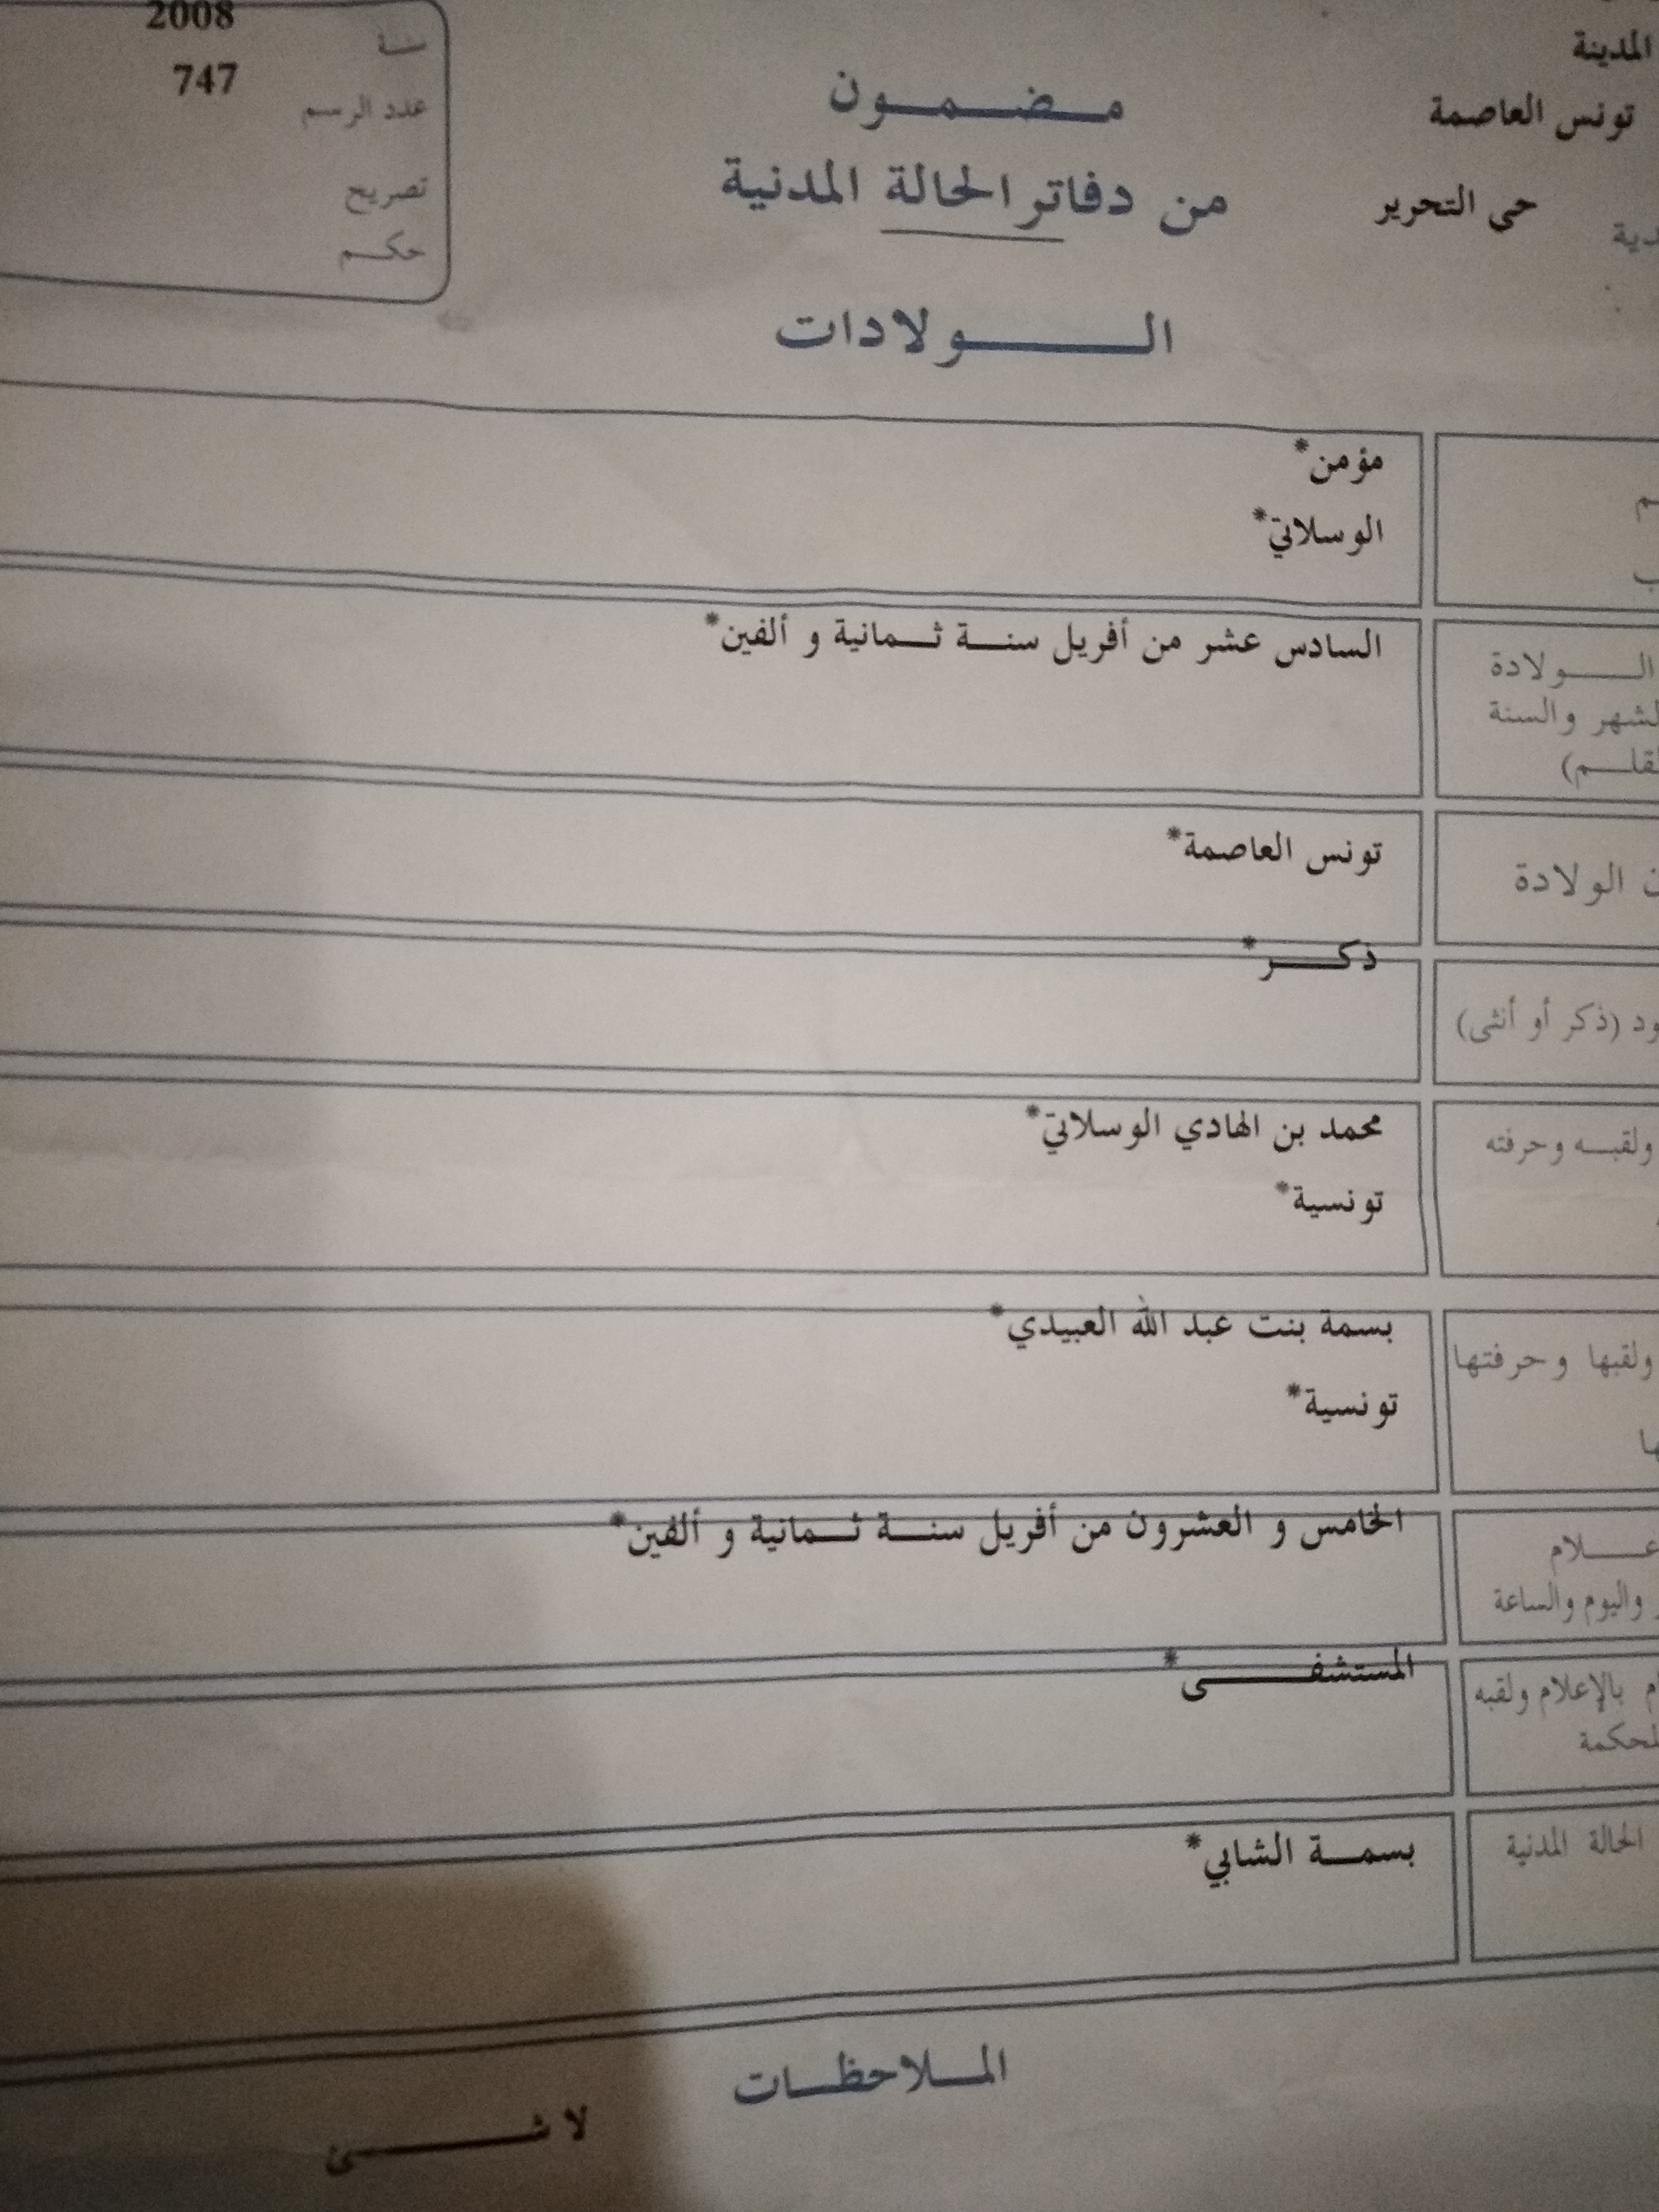 المدينة
تونس العاصمة
حى التحرير
2008
سنة
747
عدد الرسم
تصريح
حكم
مضمون
من دفاتر الحالة المدنية
الولادات
مؤمن*
الوسلاتي*
الولادة
السادس عشر من أفريل سنة ثمانية و ألفين*
والسنة
تونس العاصمة*
الولادة
ذكر*
(ذكر أو أنثى)
محمد بن الهادي الوسلاتي*
ولقبه وحرفته
تونسية*
بسمة بنت عبد الله العبيدي*
ولقبها وحرفتها
تونسية*
الخامس و العشرون من أفريل سنة ثمانية و ألفين*
واليوم والساعة
المستشفى*
بالإعلام ولقبه
بسمة الشابي*
الحالة المدنية
الملاحظات
لا شئ